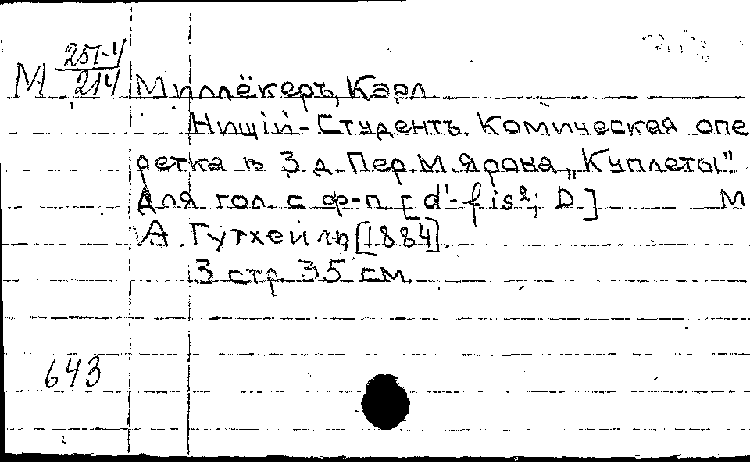 М 251-4/214 Миллёкеръ, Карл.
Нищій-Студентъ. Комическая опе
ретка в 3 д. Пер. М. Ярона „Куплеты".
Для гол. с ф-п [d¹-fis²; D.] М
А. Гутхейль [1884].
3 стр. 35 см.
643